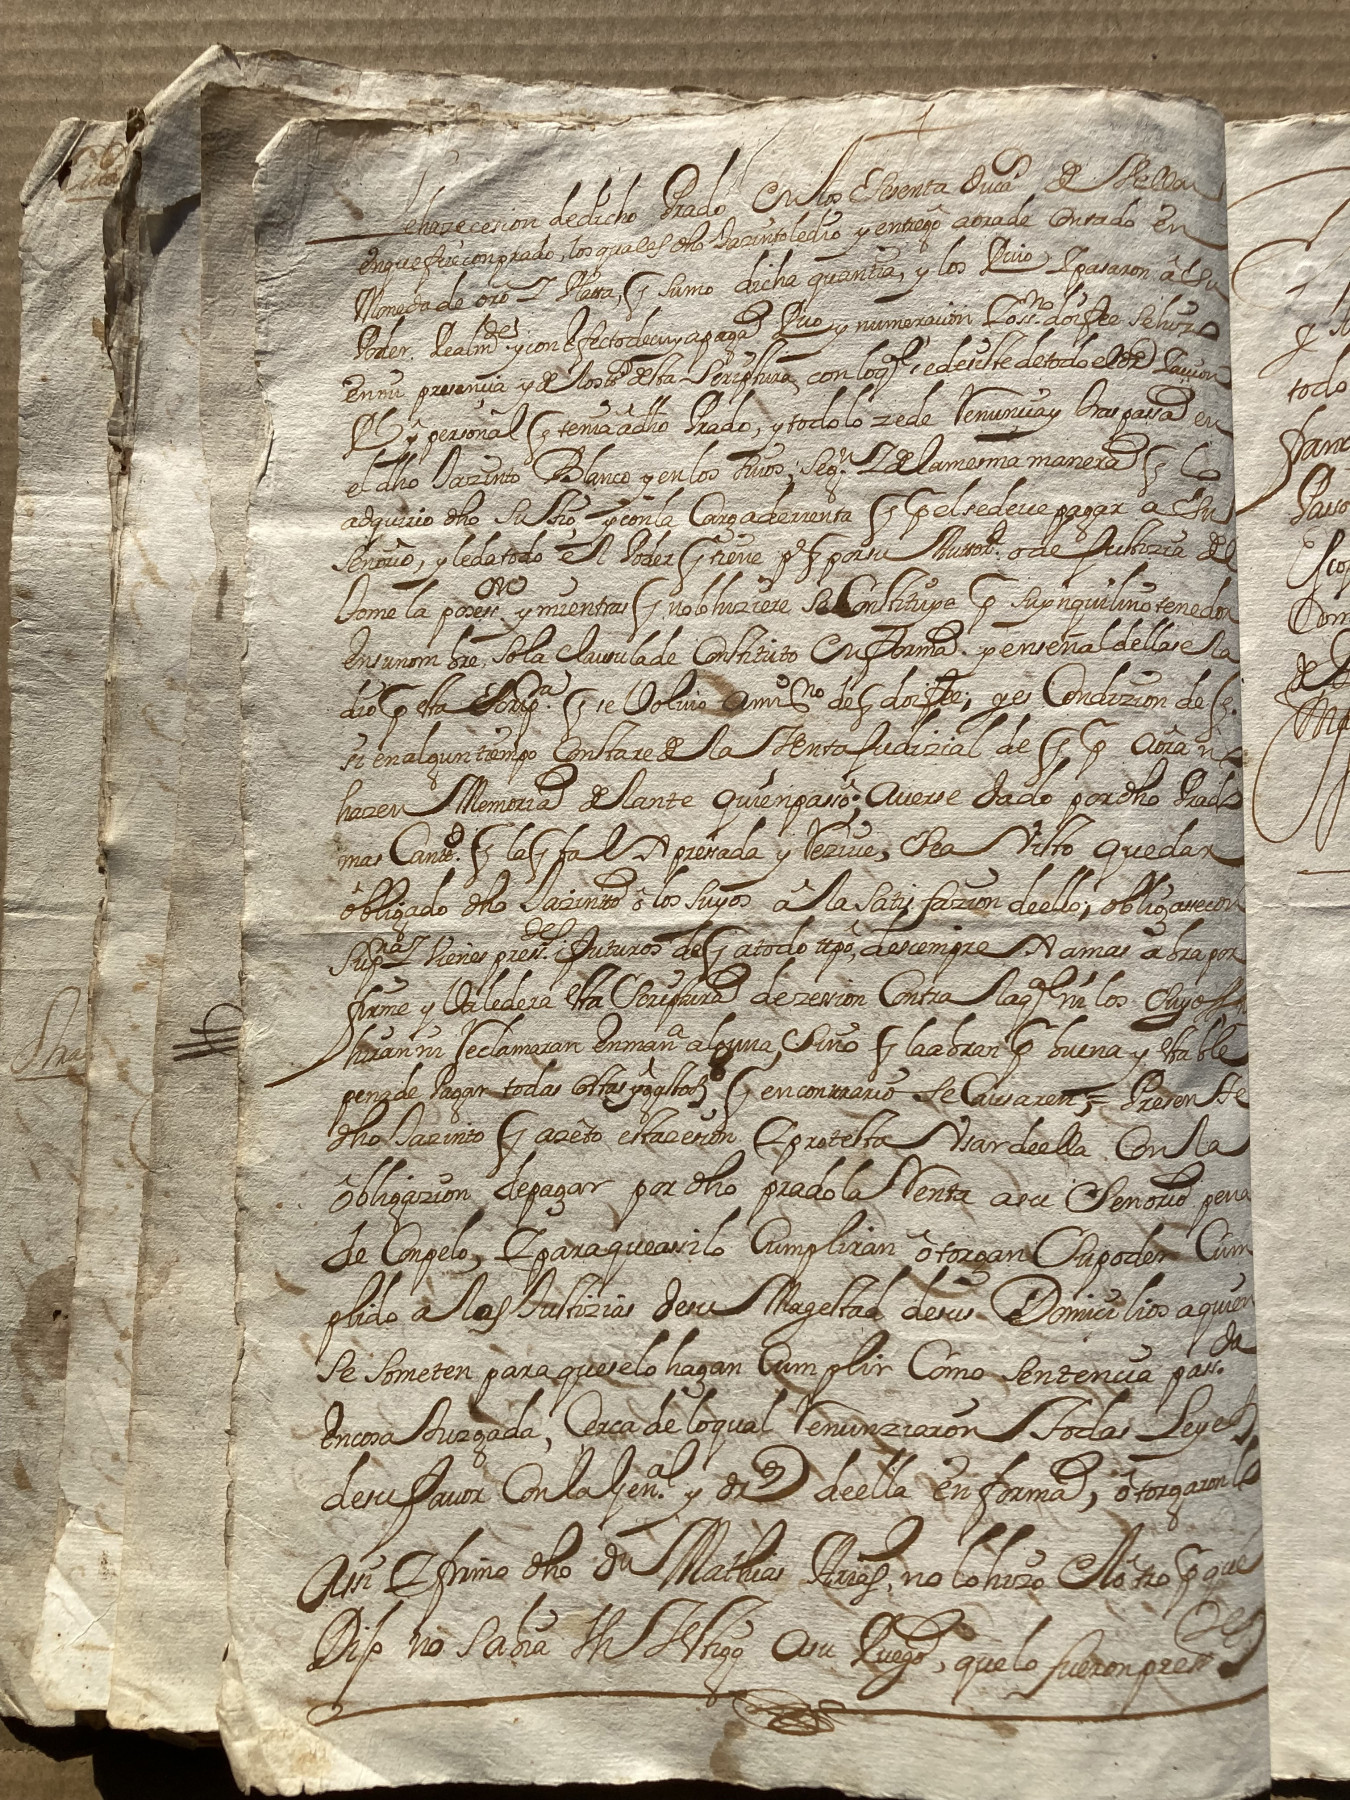 le haze cesion de dicho Prado en los Esenta duc.s de Vellon
en que fue conprado, los quales dho Jazinto le dio y entrego aora de Contado en
Moneda de oro Y Plata, q sumo dicha quantia, y los Rvio Y pasaron â su
Poder Realm.te y con Efecto de cuya paga Rvo y numeracion Yo ss.no doi fee se hizo
en mi presencia y de los t.os desta Scriptura, con lo q.l, se desiste de todo el dr.o acion
Rl y personal q tenia a dho Prado, y todo lo zede Renuncia y traspassa en
el dho Jazinto Blanco y en los suios, seg.n Y de la mesma manera q lo
adquirio dho su thio y con la Carga de renta q p el se deve pagar a su
señorio, y le da todo el Poder q tiene p.a q por su Autori.d o de Justizia
tome la poses.on y mientras q no lo hiziere se Constituye p su ynquilino tenedor
en su nombre, so la clausula de Constituto en forma. y en señal della se la
dio p esta Escrip.a q se Volvio a mi ss.no de q doi fee; y es Condizion de q.
si en algun tiempo Constare de la Renta Judizial de q p aora no
hazen Memoria delante quien passo; Averse dado por dho Prado
mas Cant.d q la q ba Expressada y Rezive, sea Visto quedar
ôbligado dho Jazinto ô los suyos â la satisfazion de ello; obligasse con
su p.a Y vienes pres.tes Y futuros de q a todo tpo, de siempre Xamas abra por
firme y Valedera esta Escriptura de zession Contra la q.l ni los suyos
hiran ni reclamaran en man.a alguna, Sino q la abran p buena y estable
pena de Pagar todas costas y gastos q en contrario se Causaren; = Presente
dho Jazinto q azeto esta zesion Y protesta Usar de ella Con la
ôbligazion de pagar por dho prado la Renta a su Señorio pena
de Conpelo, Y para que assi lo Cumpliran ôtorgan su poder Cum
plido a las Justizias de su Magestad de sus Domicilios a quien
se someten para que se lo hagan Cumplir Como sentencia pass.da
en cosa Juzgada, Cerca de lo qual Renunziaron todas Leyes
de su favor Con la Jen.al y dr.o de ella en forma, ôtorgaronlo
Assi Y firmo dho dn Mathias Arias, no lo hizo el otro p que
Dijo no sabia un testigo a su Ruego, que lo fueron pres.tes